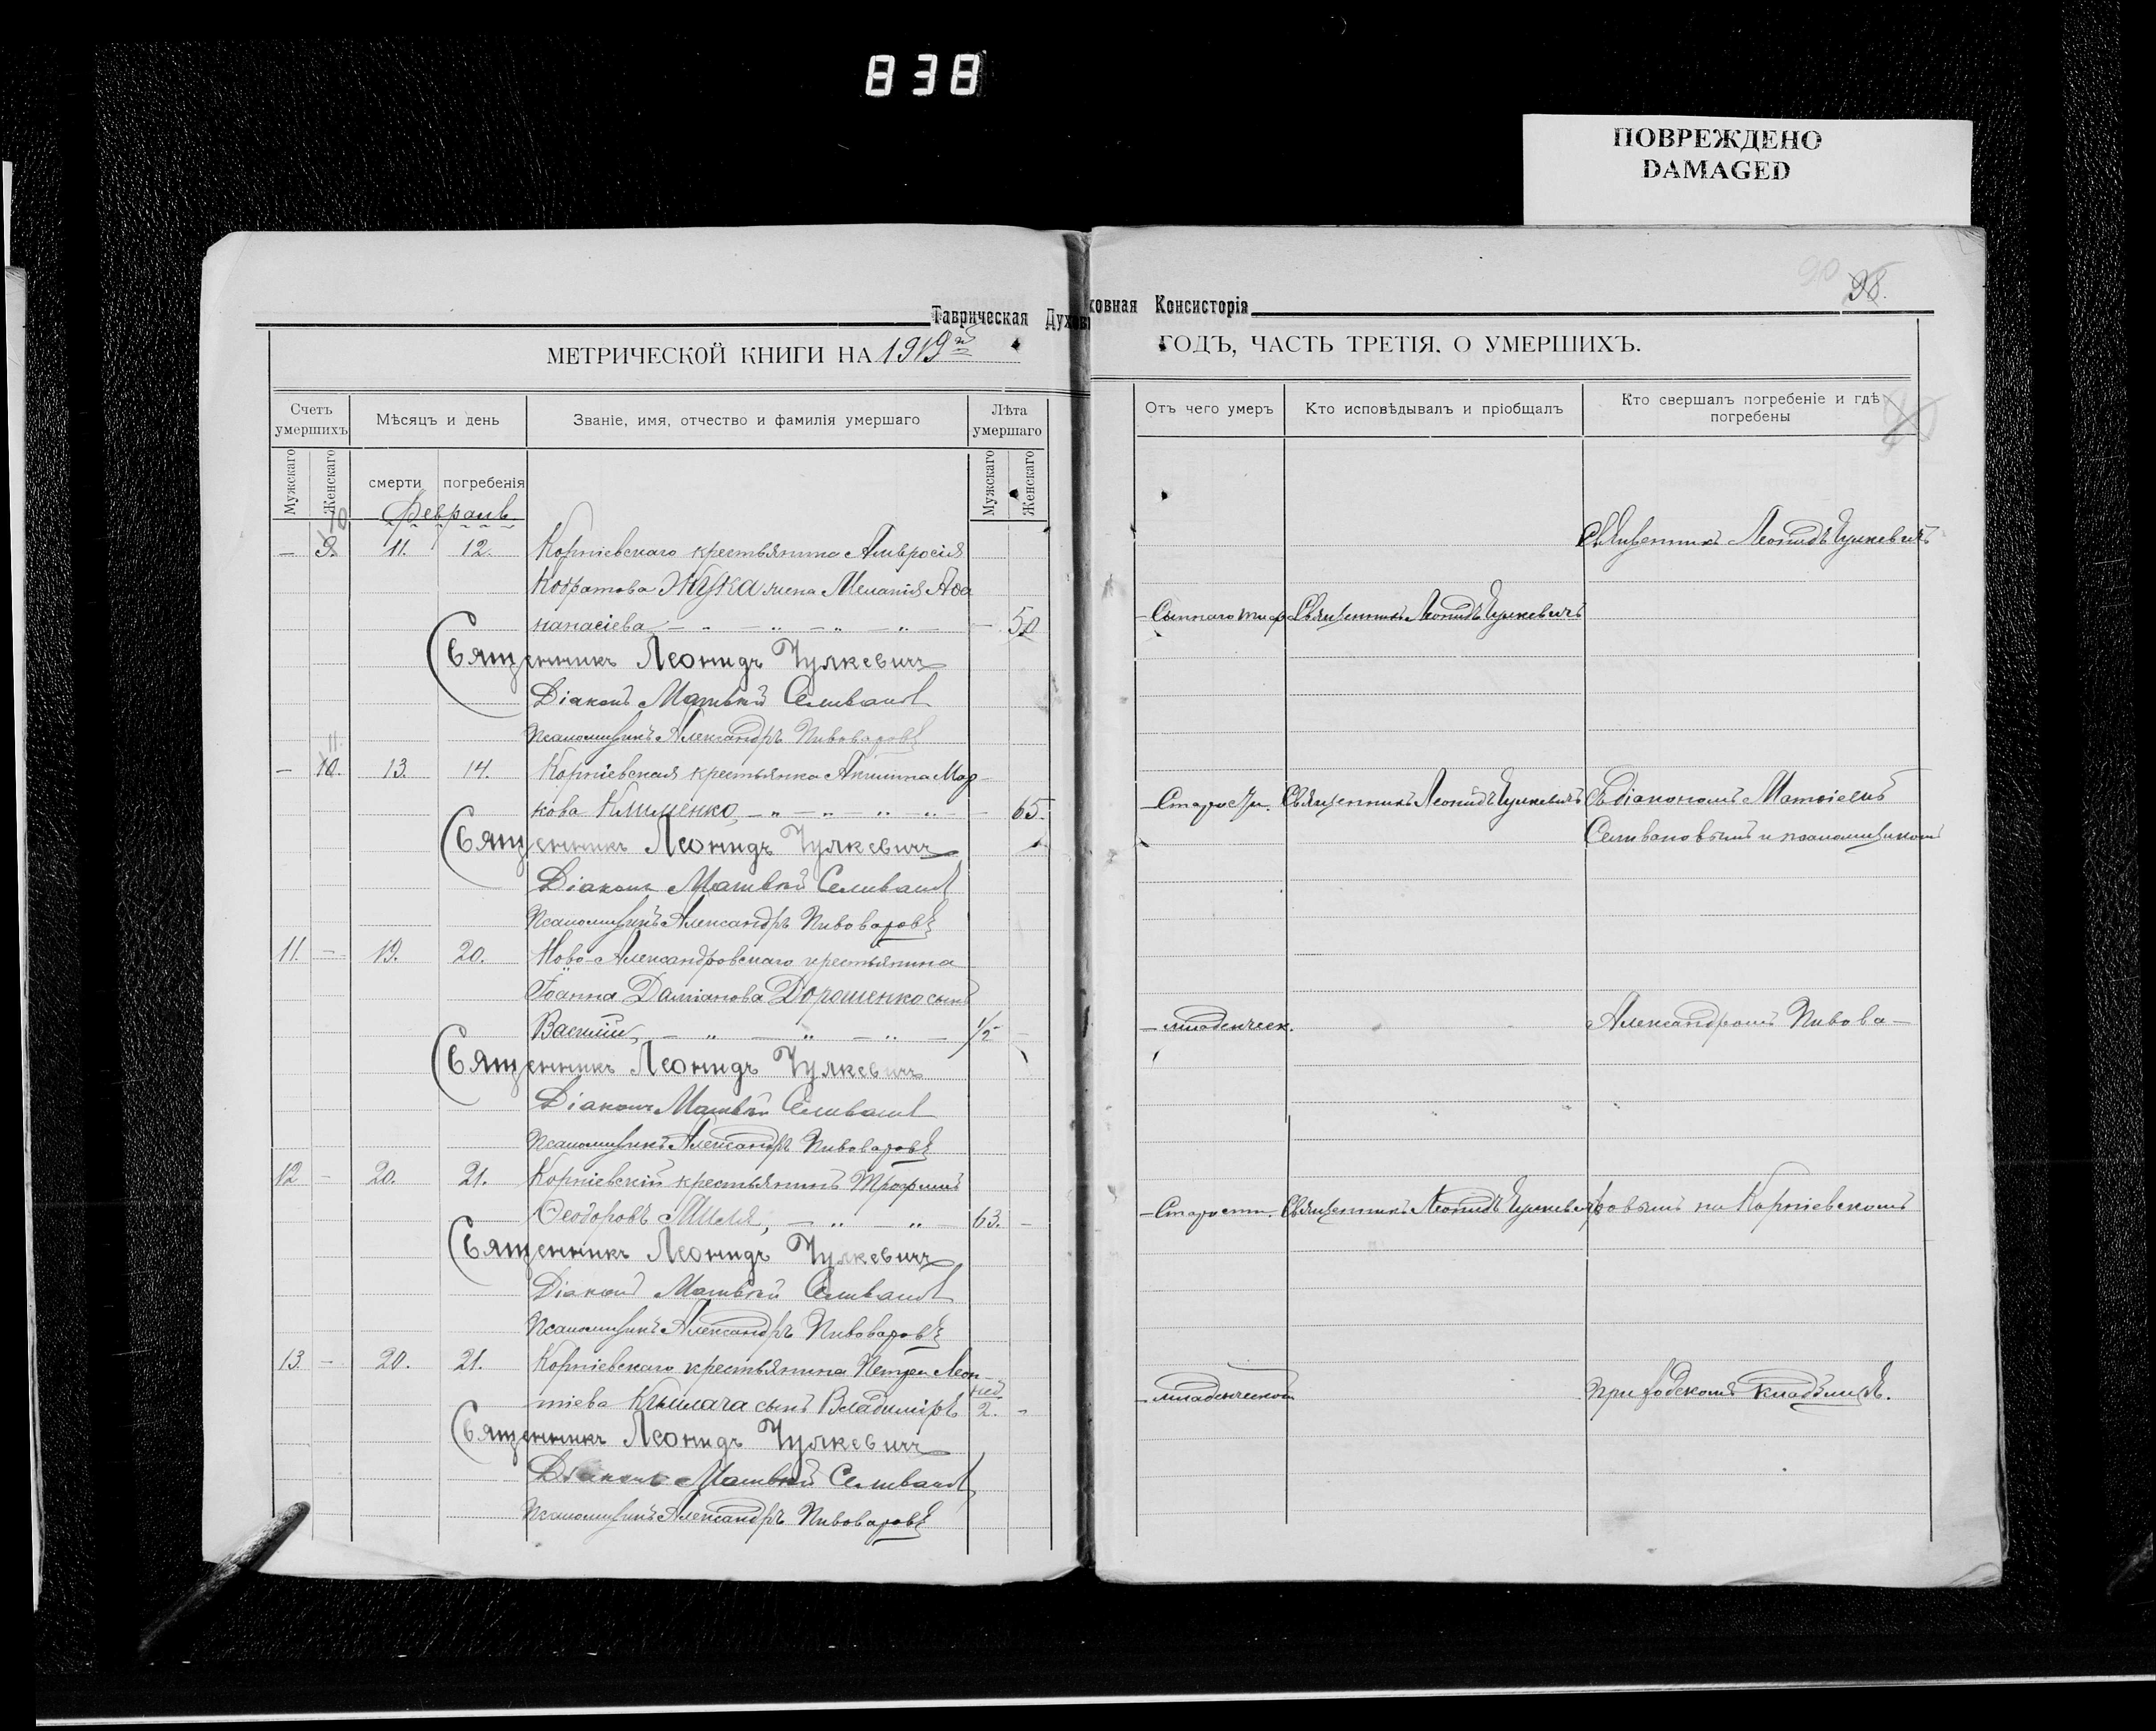 838
ПОВРЕЖДЕНО
DAMAGED
90 98.
Таврическая Духовная Консисторія
МЕТРИЧЕСКОЙ КНИГИ НА 1919й
ГОДЪ, ЧАСТЬ ТРЕТІЯ, О УМЕРШИХЪ.
Счетъ умершихъ
Мѣсяцъ и день
Званіе, имя, отчество и фамилія умершаго
Лѣта умершаго
Мужскаго
Женскаго
смерти
погребенія
Мужскаго
Женскаго
Февраль
— 9. 10 11. 12. Корніевскаго крестьянина Амвросія
Кодратова Жука жена Меланія Аѳа
насіева 50
Священникъ Леонидъ Чулкевичъ
Діаконъ Матвѣй Селивановъ
Псаломщикъ Александръ Пивоваровъ
— 10. 11 13. 14. Корніевская крестьянка Акилина Мар-
кова Клименко, 65.
Священникъ Леонидъ Чулкевичъ
Діаконъ Матвѣй Селивановъ
Псаломщикъ Александръ Пивоваровъ
11. — 19. 20. Ново-Александровскаго крестьянина
Іоанна Даміанова Дорошенко сынъ
Василій, 1/2 —
Священникъ Леонидъ Чулкевичъ
Діаконъ Матвѣй Селивановъ
Псаломщикъ Александръ Пивоваровъ
12 — 20. 21. Корніевскій крестьянинъ Трофимъ
Ѳеодоровъ 63. —
Священникъ Леонидъ Чулкевичъ
Діаконъ Матвѣй Селивановъ
Псаломщикъ Александръ Пивоваровъ
13. — 20. 21. Корніевскаго крестьянина Петра Леон-
тіева сынъ Владиміръ нед 2. —
Священникъ Леонидъ Чулкевичъ
Діаконъ Матвѣй Селивановъ
Псаломщикъ Александръ Пивоваровъ
Отъ чего умеръ
Кто исповѣдывалъ и пріобщалъ
Кто свершалъ погребеніе и гдѣ погребены
Священникъ Леонидъ Чулкевичъ
Сыпнаго тиф. Священникъ Леонидъ Чулкевичъ
Старости. Священникъ Леонидъ Чулкевичъ съ діакономъ Матѳіемъ
Селивановымъ и псаломщикомъ
младенческ. Александромъ Пивова-
Старости. Священникъ Леонидъ Чулкевичъ ровымъ на Корніевскомъ
младенческой приходскомъ кладбищѣ.